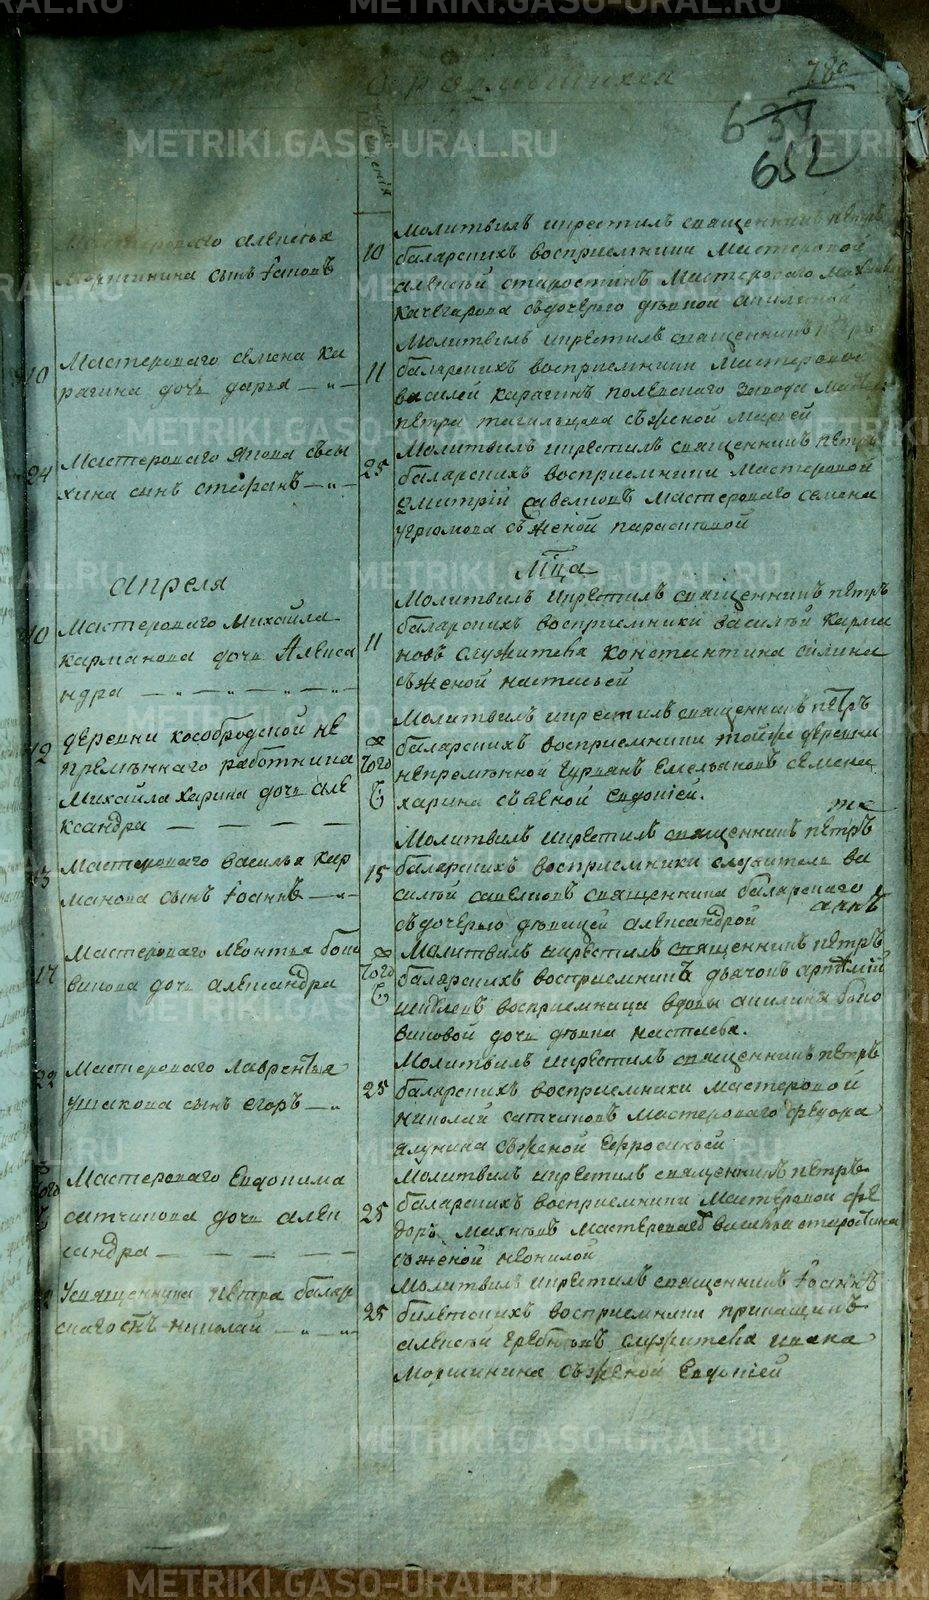 о родившихся
780
634
652
Мастероваго алексея
Моршинина сынъ Іаковъ
10
молитвилъ икрестилъ священникъ петръ
балярскихъ восприемники Мастеровой
алексей старостинъ Мастероваго
качегарова сдочерью девкой акилиной
10
Мастероваго семена ка
рагина дочь дарья
11
Молитвилъ икрестилъ священникъ петръ
балярскихъ восприемники Мастеровой
василей карагинъ полевскаго завода
петра тагильцова съженой марьей
24
Мастероваго якова
хина сынъ стефанъ
25
Молитвилъ икрестилъ священникъ петръ
балярскихъ восприемники Мастеровой
дмитрій савелковъ мастероваго семена
угрюмова съженой парасковой
апреля
Мца
10
Мастероваго Михайла
карманова дочь Алекса
ндра
11
Молитвилъ икрестилъ священникъ петръ
балярскихъ восприемники василѣй карма
новъ служителя константина силина
съженой настасьей
12
деревни кособродской не
премѣннаго работника
Михайла харина дочь але
ксандра
того
Молитвилъ икрестилъ священникъ петръ
балярскихъ восприемники тойже деревни
непремѣнной гурианъ емельяновъ семена
харина съженой евдокіей.
13
Мастероваго василья кар
манова сынъ Іоаннъ
15
Молитвилъ икрестилъ священникъ петръ
балярскихъ восприемники служитель ва
силѣй савелковъ священника балярскаго
съдочерью дѣвицей александрой
17
Мастероваго леонтья боко
викова дочь александра
того
Молитвилъ икрестилъ священникъ петръ
балярскихъ восприемникъ дьячокъ артемій
восприемница вдовы акилины боко
виковой дочь девка настасья.
22
Мастероваго лаврентья
ушакова сынъ егоръ
25
Молитвилъ икрестилъ священникъ петръ
балярскихъ восприемники мастеровой
николай сатчиковъ мастероваго федора
ялунина съженой ефросиньей
того
Мастероваго Евдокима
сатчикова дочь алек
сандра
25
Молитвилъ икрестилъ священникъ петръ
балярскихъ восприемники Мастеровой фе
доръ махневъ мастероваго василья старостина
съженой неонилой
Усвященника петра баляр
скаго сынъ николай
25
Молитвилъ икрестилъ священникъ Іоаннъ
восприемники прикащикъ
алексей гребневъ служителя ивана
Моршинина съженой евдокіей